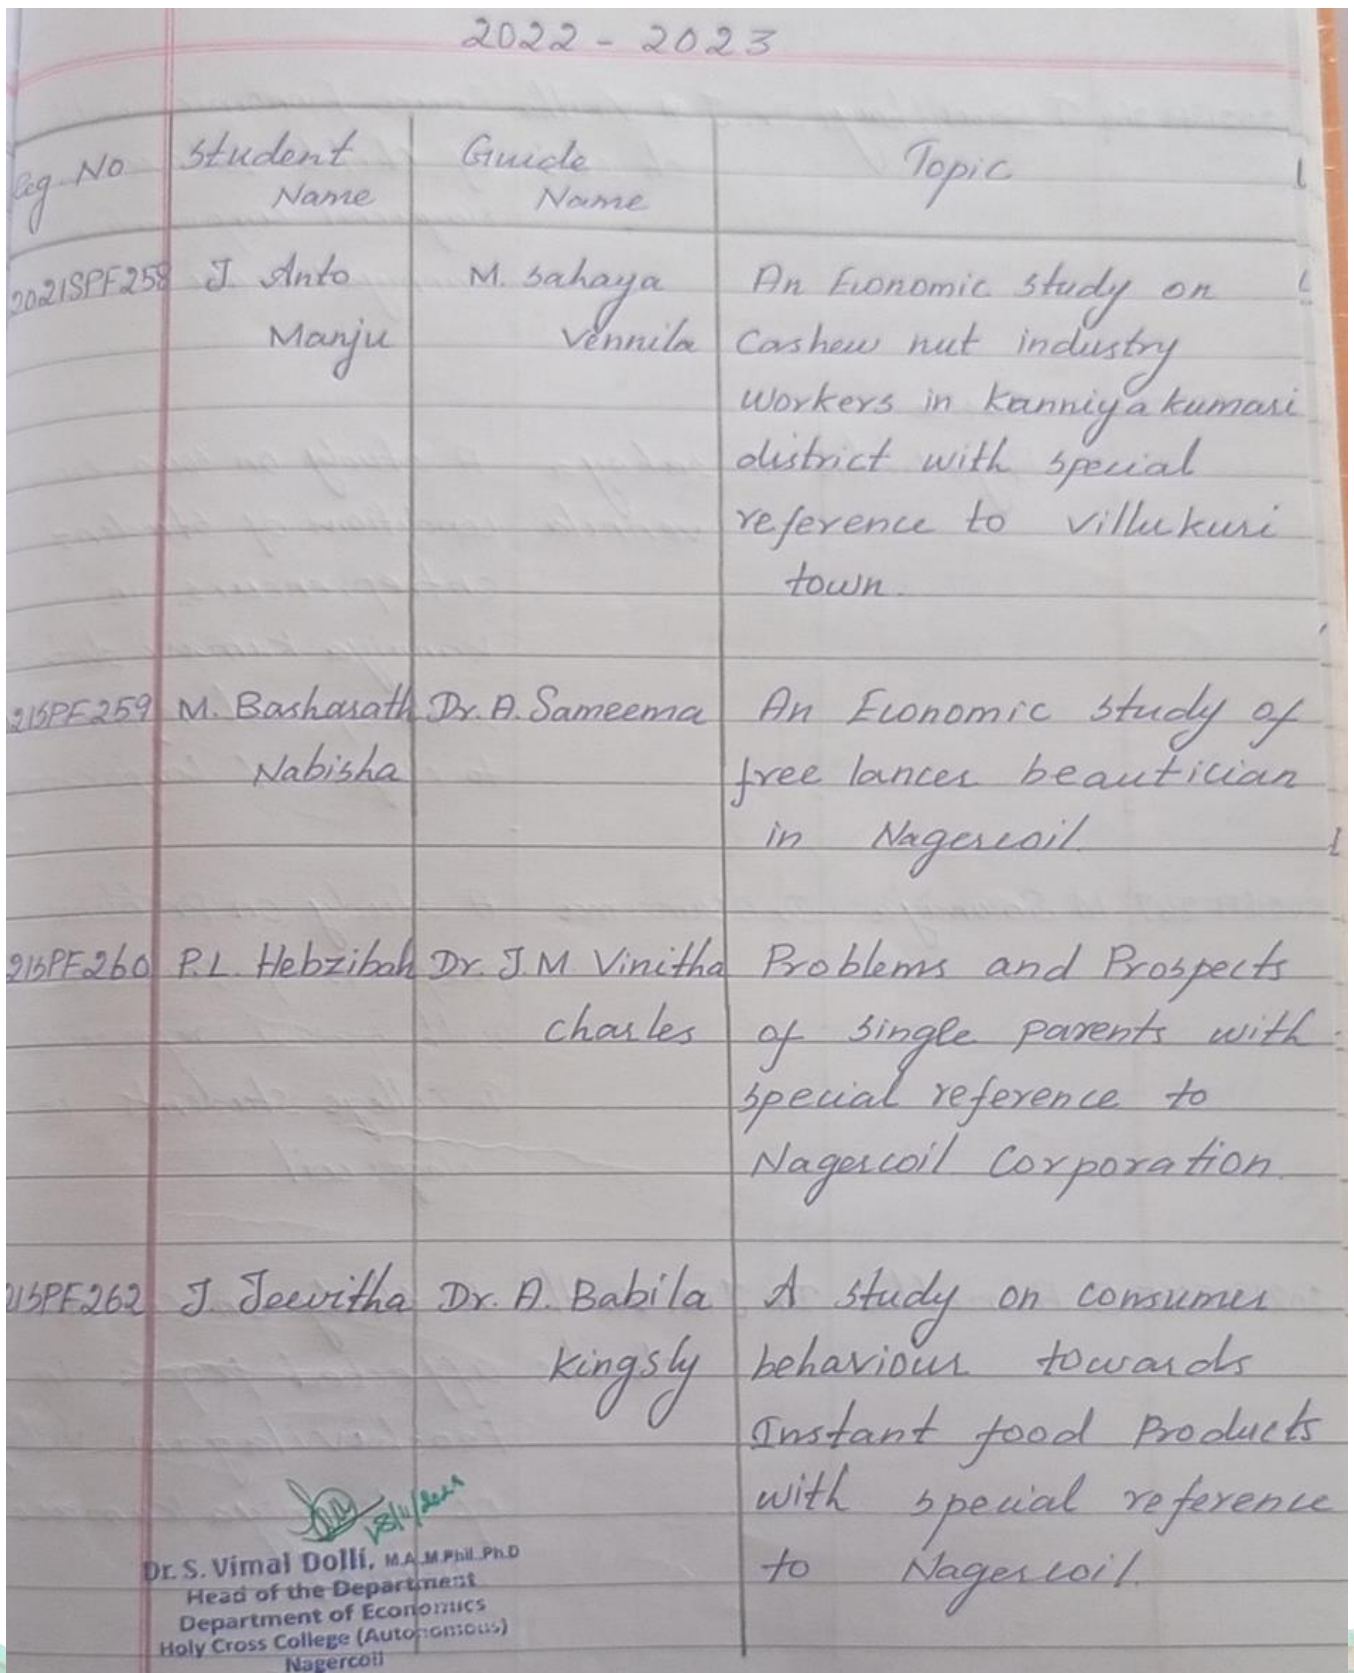 2022 - 2023
Reg. No Student Name Guide Name Topic
2021SPF258 J. Anto M. Sahaya An Economic Study on
Manju Vennila Cashew nut industry
workers in Kanniyakumari
district with special
reference to Villukuri
town.
21SPF259 M. Basharath Dr. A. Sameema An Economic Study of
Nabisha free lancer beautician
in Nagercoil.
21SPF260 P.L. Hebzibah Dr. J.M. Vinitha Problems and Prospects
Charles of single parents with
special reference to
Nagercoil Corporation.
21SPF262 J. Jeevitha Dr. A. Babila A study on consumer
Kingsly behaviour towards
Instant food Products
with special reference
to Nagercoil.
Dr. S. Vimal Dolli, M.A.,M.Phil.,Ph.D
Head of the Department
Department of Economics
Holy Cross College (Autonomous)
Nagercoil